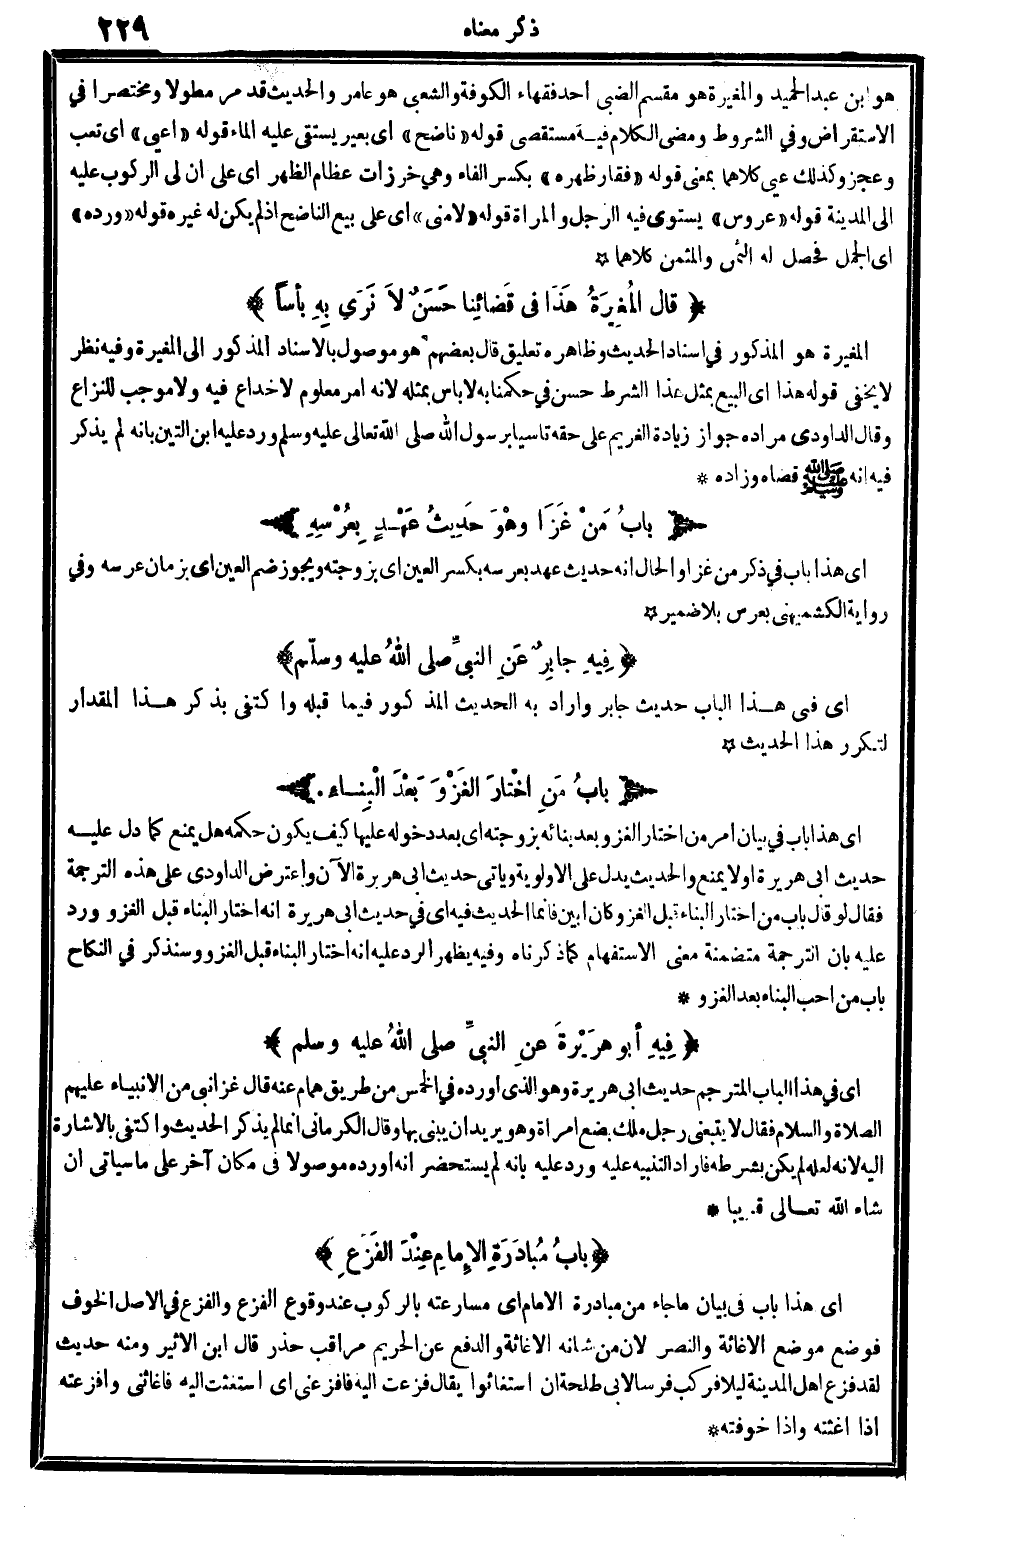 ذكر معناه
٢٢٩
هو ابن عبد الحميد والمغيرة هو مقسم الضبى احد فقهاء الكوفة والشعبى هو عامر والحديث قد مر مطولا ومختصرا في
الاستقراض وفي الشروط ومضى الكلام فيه مستقصى قوله «ناضح» اى بعير يستقى عليه الماء قوله «اعيي» اى تعب
وعجز وكذلك عيي كلاهما بمعنى قوله «فقار ظهره» بكسر الفاء وهي خرزات عظام الظهر اى على ان لى الركوب عليه
الى المدينة قوله «عروس» يستوى فيه الرجل والمراة قوله «لامنى» اى على بيع الناضح اذ لم يكن له غيره قوله «ورده»
اى الجمل فحصل له الثمن والمثمن كلاهما ☆
﴿ قال المُغِيرَةُ هَذَا فى قَضَائِنا حَسَنٌ لاَ نَرَي بِهِ بأساً ﴾
المغيرة هو المذكور في اسناد الحديث وظاهره تعليق قال بعضهم هو موصول بالاسناد المذكور الى المغيرة وفيه نظر
لا يخفى قوله هذا اى البيع بمثل هذا الشرط حسن في حكمنا به لا باس بمثله لانه امر معلوم لا خداع فيه ولا موجب للنزاع
وقال الداودى مراده جواز زيادة الغريم على حقه تاسيا برسول الله صلى الله تعالى عليه وسلم ورد عليه ابن التين بانه لم يذكر
فيه انه ﷺ قضاه وزاده *
﴿ بابُ مَنْ غَزَا وهْوَ حَدِيثُ عَهْدٍ بِعُرْسِهِ ﴾
اى هذا باب في ذكر من غزا والحال انه حديث عهد بعرسه بكسر العين اى بزوجته ويجوز ضم العين اى بزمان عرسه وفي
رواية الكشميهنى بعرس بلا ضمير ☆
﴿ فِيهِ جابِرٌ عَنِ النبيِّ صلى اللهُ عليه وسلّم ﴾
اى فى هذا الباب حديث جابر واراد به الحديث المذكور فيما قبله واكتفى بذكر هذا المقدار
لتكرر هذا الحديث ☆
﴿ بابُ مَنِ اخْتارَ الغَزْوَ بَعْدَ الْبِنَاءِ . ﴾
اى هذا باب في بيان امر من اختار الغزو بعد بنائه بزوجته اى بعد دخوله عليها كيف يكون حكمه هل يمنع كما دل عليه
حديث ابى هريرة اولا يمنع والحديث يدل على الاولوية وياتى حديث ابى هريرة الآن واعترض الداودى على هذه الترجمة
فقال لو قال باب من اختار البناء قبل الغزو كان ابين فانما الحديث فيه اى في حديث ابى هريرة انه اختار البناء قبل الغزو ورد
عليه بان الترجمة متضمنة معنى الاستفهام كما ذكرناه وفيه يظهر الرد عليه انه اختار البناء قبل الغزو وسنذكر في النكاح
باب من احب البناء بعد الغزو *
﴿ فِيهِ أبو هرَيْرةَ عنِ النبيِّ صلى اللهُ عليه وسلم ﴾
اى في هذا الباب المترجم حديث ابى هريرة وهو الذى اورده في الخمس من طريق همام عنه قال غزا نبى من الانبياء عليهم
الصلاة والسلام فقال لا يتبعنى رجل ملك بضع امراة وهو يريد ان يبنى بها وقال الكرمانى انما لم يذكر الحديث واكتفى بالاشارة
اليه لانه لعله لم يكن بشرطه فاراد التنبيه عليه ورد عليه بانه لم يستحضر انه اورده موصولا فى مكان آخر على ما سياتى ان
شاء الله تعالى قريبا *
﴿ بابُ مُبادَرَةِ الإمامِ عِنْدَ الفَزَعِ ﴾
اى هذا باب فى بيان ما جاء من مبادرة الامام اى مسارعته بالركوب عند وقوع الفزع والفزع في الاصل الخوف
فوضع موضع الاغاثة والنصر لان من شانه الاغاثة والدفع عن الحريم مراقب حذر قال ابن الاثير ومنه حديث
لقد فزع اهل المدينة ليلا فركب فرسا لابى طلحة ان استغاثوا يقال فزعت اليه فافزعنى اى استغثت اليه فاغاثنى وافزعته
اذا اغثته واذا خوفته *